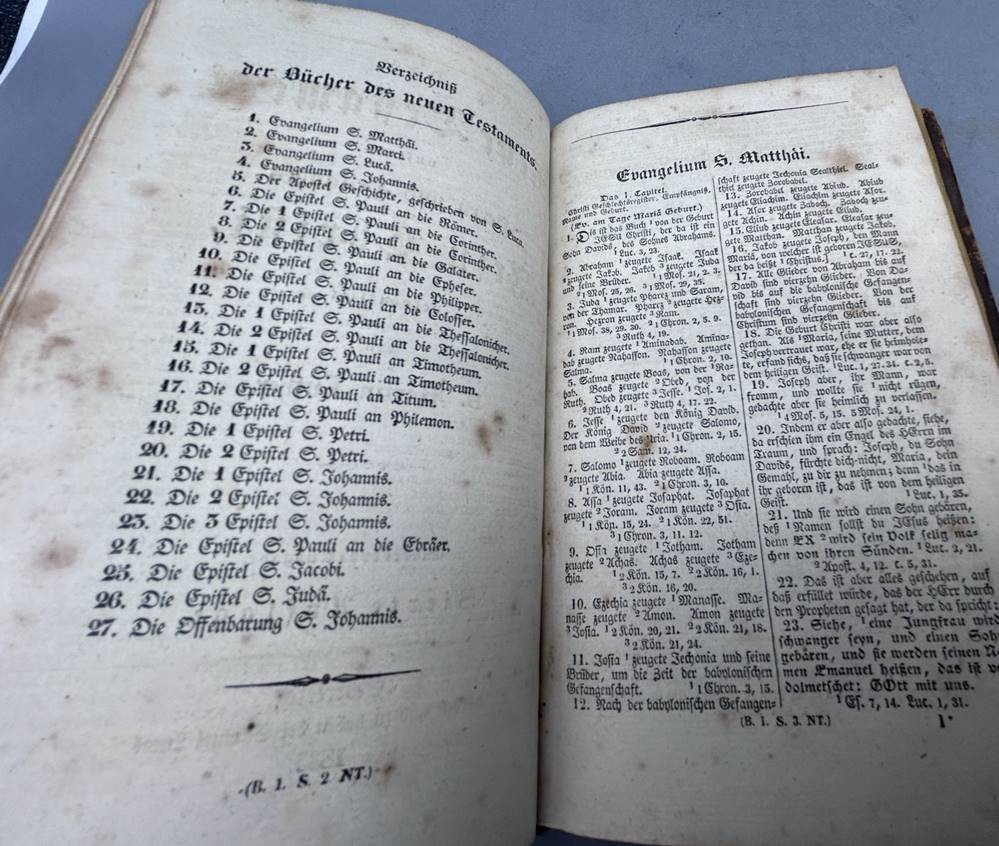 Verzeichniß
der Bücher des neuen Testaments.
1. Evangelium S. Matthäi.
2. Evangelium S. Marci.
3. Evangelium S. Lucä.
4. Evangelium S. Johannis.
5. Der Apostel Geschichte, geschrieben von S. Luca.
6. Die Epistel S. Pauli an die Römer.
7. Die 1 Epistel S. Pauli an die Corinther.
8. Die 2 Epistel S. Pauli an die Corinther.
9. Die Epistel S. Pauli an die Galater.
10. Die Epistel S. Pauli an die Epheser.
11. Die Epistel S. Pauli an die Philipper.
12. Die Epistel S. Pauli an die Colosser.
13. Die 1 Epistel S. Pauli an die Thessalonicher.
14. Die 2 Epistel S. Pauli an die Thessalonicher.
15. Die 1 Epistel S. Pauli an Timotheum.
16. Die 2 Epistel S. Pauli an Timotheum.
17. Die Epistel S. Pauli an Titum.
18. Die Epistel S. Pauli an Philemon.
19. Die 1 Epistel S. Petri.
20. Die 2 Epistel S. Petri.
21. Die 1 Epistel S. Johannis.
22. Die 2 Epistel S. Johannis.
23. Die 3 Epistel S. Johannis.
24. Die Epistel S. Pauli an die Ebräer.
25. Die Epistel S. Jacobi.
26. Die Epistel S. Judä.
27. Die Offenbarung S. Johannis.
(B. 1. S. 2 NT.)
Evangelium S. Matthäi.
Das 1. Capitel.
Christi Geschlechtsregister, Empfängniß,
Name und Geburt.
(Ev. am Tage Mariä Geburt.)
1. Dis ist das Buch ¹von der Geburt
JESU Christi, der da ist ein
Sohn Davids, des Sohnes Abrahams.
¹Luc. 3, 23.
2. Abraham ¹zeugete Isaak. Isaak
²zeugete Jakob. Jakob ³zeugete Juda
und seine Brüder. ¹1 Mos. 21, 2. 3.
²1 Mos. 25, 26. ³1 Mos. 29, 35.
3. Juda ¹zeugete Pharez und Saram,
von der Thamar. Pharez ²zeugete Hez-
ron. Hezron zeugete ³Ram.
¹1 Mos. 38, 29. 30. ²1 Chron. 2, 5. 9.
³Ruth 4, 19.
4. Ram zeugete ¹Aminadab. Amina-
dab zeugete Nahasson. Nahasson zeugete
Salma. ¹1 Chron. 2, 10.
5. Salma zeugete Boas, von der ¹Ra-
hab. Boas zeugete ²Obed, von der
Ruth. Obed zeugete ³Jesse. ¹Jos. 2, 1.
²Ruth 4, 21. ³Ruth 4, 17. 22.
6. Jesse ¹zeugete den König David.
Der König David ²zeugete Salomo,
von dem Weibe des Uria. ¹1 Chron. 2, 15.
²2 Sam. 12, 24.
7. Salomo ¹zeugete Roboam. Roboam
²zeugete Abia. Abia zeugete Assa.
¹1 Kön. 11, 43. ²1 Chron. 3, 10.
8. Assa ¹zeugete Josaphat. Josaphat
zeugete ²Joram. Joram zeugete ³Osia.
¹1 Kön. 15, 24. ²1 Kön. 22, 51.
³1 Chron. 3, 11. 12.
9. Osia zeugete ¹Jotham. Jotham
zeugete ²Achas. Achas zeugete ³Eze-
chia. ¹2 Kön. 15, 7. ²2 Kön. 16, 1.
³2 Kön. 16, 20.
10. Ezechia zeugete ¹Manasse. Ma-
nasse zeugete ²Amon. Amon zeugete
³Josia. ¹2 Kön. 20, 21. ²2 Kön. 21, 18.
³2 Kön. 21, 24.
11. Josia ¹zeugete Jechonia und seine
Brüder, um die Zeit der babylonischen
Gefangenschaft. ¹1 Chron. 3, 15.
12. Nach der babylonischen Gefangen-
schaft zeugete Jechonia Sealthiel. Seal-
thiel zeugete Zorobabel.
13. Zorobabel zeugete Abiud. Abiud
zeugete Eliachim. Eliachim zeugete Asor.
14. Asor zeugete Zadoch. Zadoch zeu-
gete Achin. Achin zeugete Eliud.
15. Eliud zeugete Eleasar. Eleasar zeu-
gete Matthan. Matthan zeugete Jakob.
16. Jakob zeugete Joseph, den Mann
Mariä, von welcher ist geboren JESUS,
der da heißt ¹Christus. ¹c. 27, 17. 22.
17. Alle Glieder von Abraham bis auf
David sind vierzehn Glieder. Von Da-
vid bis auf die babylonische Gefangen-
schaft sind vierzehn Glieder. Von der
babylonischen Gefangenschaft bis auf
Christum sind vierzehn Glieder.
18. Die Geburt Christi war aber also
gethan. Als ¹Maria, seine Mutter, dem
Joseph vertrauet war, ehe er sie heimhole-
te, erfand sichs, daß sie schwanger war von
dem heiligen Geist. ¹Luc. 1, 27. 34. c. 2, 5.
19. Joseph aber, ihr Mann, war
fromm, und wollte sie ¹nicht rügen,
gedachte aber sie heimlich zu verlassen.
¹4 Mos. 5, 15. 5 Mos. 24, 1.
20. Indem er aber also gedachte, siehe,
da erschien ihm ein Engel des HErrn im
Traum, und sprach: Joseph, du Sohn
Davids, fürchte dich nicht, Maria, dein
Gemahl, zu dir zu nehmen; denn ¹das in
ihr geboren ist, das ist von dem heiligen
Geist. ¹Luc. 1, 35.
21. Und sie wird einen Sohn gebären,
deß ¹Namen sollst du JEsus heißen:
denn ER ²wird sein Volk selig ma-
chen von ihren Sünden. ¹Luc. 2, 21.
²Apost. 4, 12. c. 5, 31.
22. Das ist aber alles geschehen, auf
daß erfüllet würde, das der HErr durch
den Propheten gesagt hat, der da spricht:
23. Siehe, ¹eine Jungfrau wird
schwanger seyn, und einen Sohn
gebären, und sie werden seinen Na-
men Emanuel heißen, das ist v
dolmetschet: GOtt mit uns.
¹Es. 7, 14. Luc. 1, 31.
(B. 1. S. 3. NT.)
1*